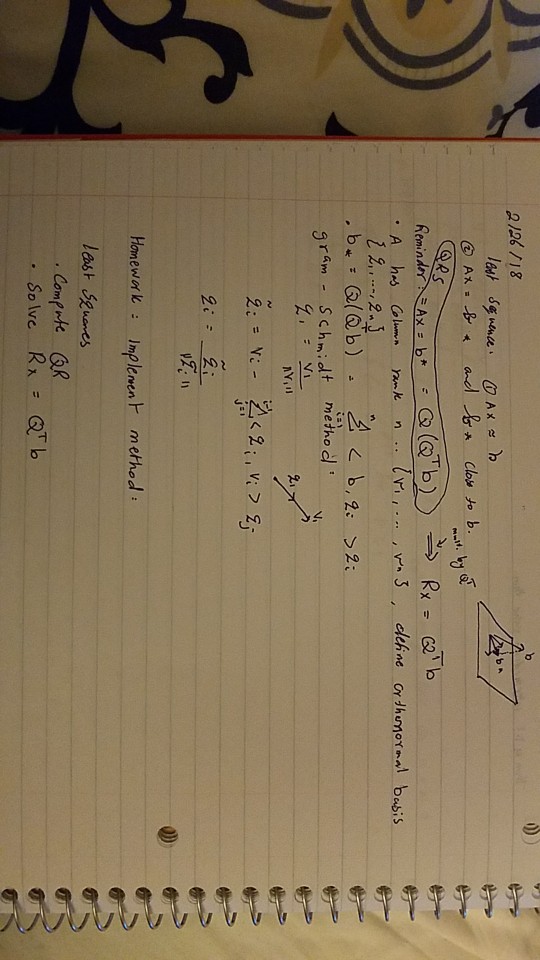 2/26/18
least sequence. ① Ax ≈ b
② Ax = b* and b* close to b.
b
b*
mult. by Qᵀ
Reminder: QRS = Ax = b* = Q(Qᵀb) ⟹ Rx = Qᵀb
• A has column rank n .. {v₁, ..., vₙ}, define orthonormal babis
{q₁, ..., qₙ}
• b* = Q(Qᵀb) = Σⁿᵢ₌₁ < b, qᵢ > qᵢ
gram-Schmidt method:
q₁ = v₁ / ||v₁||
q₁ v₁
q̃ᵢ = vᵢ - Σⁱ⁻¹ⱼ₌₁ < qᵢ, vᵢ > qⱼ
qᵢ = q̃ᵢ / ||q̃ᵢ||
Homework: Implement method:
least squares
• Compute QR
• Solve Rx = Qᵀb